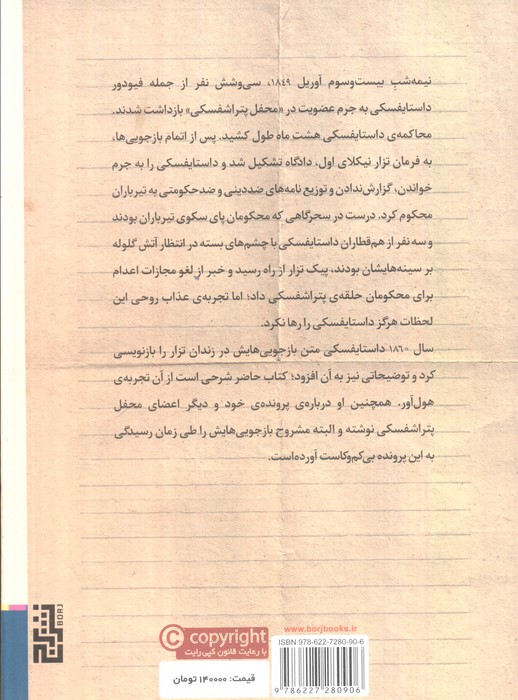 نیمه‌شب بیست‌وسوم آوریل ۱۸۴۹، سی‌وشش نفر از جمله فیودور
داستایفسکی به جرم عضویت در «محفل پتراشفسکی» بازداشت شدند.
محاکمه‌ی داستایفسکی هشت ماه طول کشید، پس از اتمام بازجویی‌ها،
به فرمان تزار نیکلای اول، دادگاه تشکیل شد و داستایفسکی را به جرم
خواندن، گزارش‌ندادن و توزیع نامه‌های ضددینی و ضدحکومتی به تیرباران
محکوم کرد. درست در سحرگاهی که محکومان پای سکوی تیرباران بودند
و سه نفر از هم‌قطاران داستایفسکی با چشم‌های بسته در انتظار آتش گلوله
بر سینه‌هایشان بودند، پیک تزار از راه رسید و خبر از لغو مجازات اعدام
برای محکومان حلقه‌ی پتراشفسکی داد؛ اما تجربه‌ی عذاب روحی این
لحظات هرگز داستایفسکی را رها نکرد.
سال ۱۸۶۰ داستایفسکی متن بازجویی‌هایش در زندان تزار را بازنویسی
کرد و توضیحاتی نیز به آن افزود؛ کتاب حاضر شرحی است از آن تجربه‌ی
هول‌آور. همچنین او درباره‌ی پرونده‌ی خود و دیگر اعضای محفل
پتراشفسکی نوشته و البته مشروح بازجویی‌هایش را طی زمان رسیدگی
به این پرونده بی‌کم‌وکاست آورده‌است.
BORJ
© copyright
با رعایت قانون کپی رایت
قیمت: ۱۴۰۰۰۰ تومان
www.borjbooks.ir
ISBN: 978-622-7280-90-6
9 786227 280906